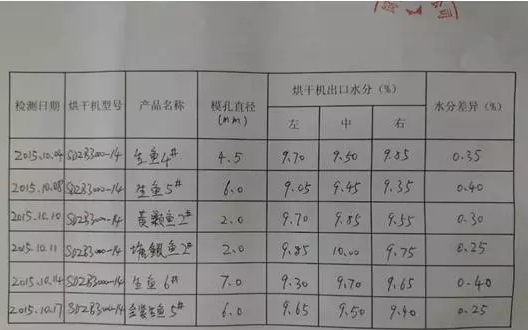 检测日期 烘干机型号 产品名称 模孔直径(mm) 烘干机出口水分(%) 水分差异(%)
左 中 右
2015.10.04 SDZB3000-14 生鱼4# 4.5 9.70 9.50 9.85 0.35
2015.10.08 SDZB3000-14 生鱼5# 6.0 9.05 9.45 9.35 0.40
2015.10.10 SDZB3000-14 黄颡鱼2# 2.0 9.70 9.85 9.55 0.30
2015.10.11 SDZB3000-14 鱼2# 2.0 9.85 10.00 9.75 0.25
2015.10.14 SDZB3000-14 生鱼6# 7.0 9.30 9.70 9.65 0.40
2015.10.17 SDZB3000-14 生鱼5# 6.0 9.65 9.50 9.40 0.25